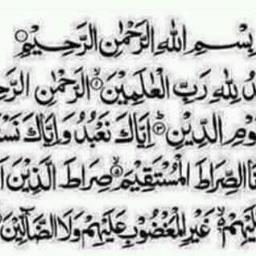 بِسْمِ اللهِ الرَّحْمٰنِ الرَّحِيْمِ
لِلهِ رَبِّ الْعٰلَمِيْنَ الرَّحْمٰنِ
الدِّيْنِ اِيَّاكَ نَعْبُدُ وَاِيَّاكَ
الصِّرَاطَ الْمُسْتَقِيْمَ صِرَاطَ الَّذِيْنَ
غَيْرِ الْمَغْضُوْبِ عَلَيْهِمْ وَلَا الضَّآلِّيْنَ